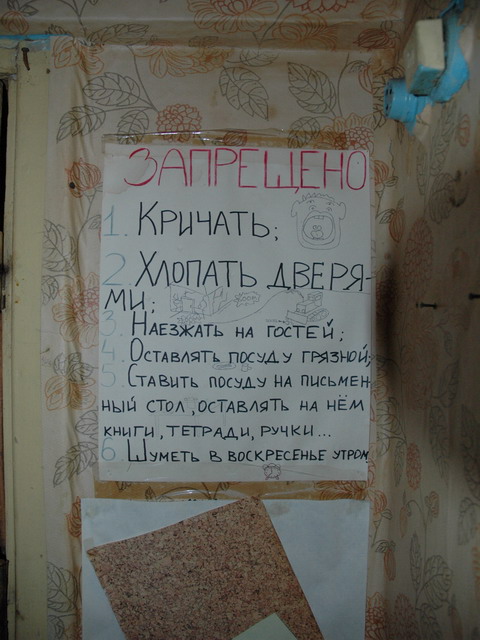 ЗАПРЕЩЕНО
1. КРИЧАТЬ;
2. ХЛОПАТЬ ДВЕРЯ-
МИ;
3. НАЕЗЖАТЬ НА ГОСТЕЙ;
4. ОСТАВЛЯТЬ ПОСУДУ ГРЯЗНОЙ;
5. СТАВИТЬ ПОСУДУ НА ПИСЬМЕН-
НЫЙ СТОЛ, ОСТАВЛЯТЬ НА НЁМ
КНИГИ, ТЕТРАДИ, РУЧКИ...
6. ШУМЕТЬ В ВОСКРЕСЕНЬЕ УТРОМ